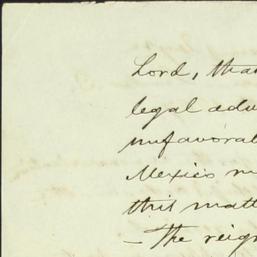 Lord, tha
legal adv
unfavorab
Mexico m
this matt
— The reign